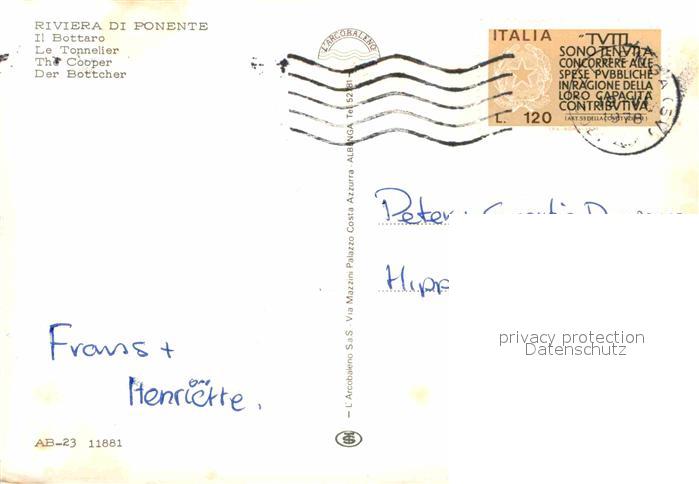 RIVIERA DI PONENTE
Il Bottaro
Le Tonnelier
The Cooper
Der Bottcher
L'ARCOBALENO
ITALIA
"TUTTI
SONO TENUTI A
CONCORRERE ALLE
SPESE PVBBLICHE
IN RAGIONE DELLA
LORO CAPACITÀ
CONTRIBUTIVA"
(ART. 53 DELLA COSTITUZIONE)
L. 120
L'Arcobaleno S.a.S. Via Mazzini Palazzo Costa Azzurra - ALBENGA Tel. 52781
Peter
Hipp
privacy protection
Datenschutz
Frans +
Henriëtte.
AB-23 11881